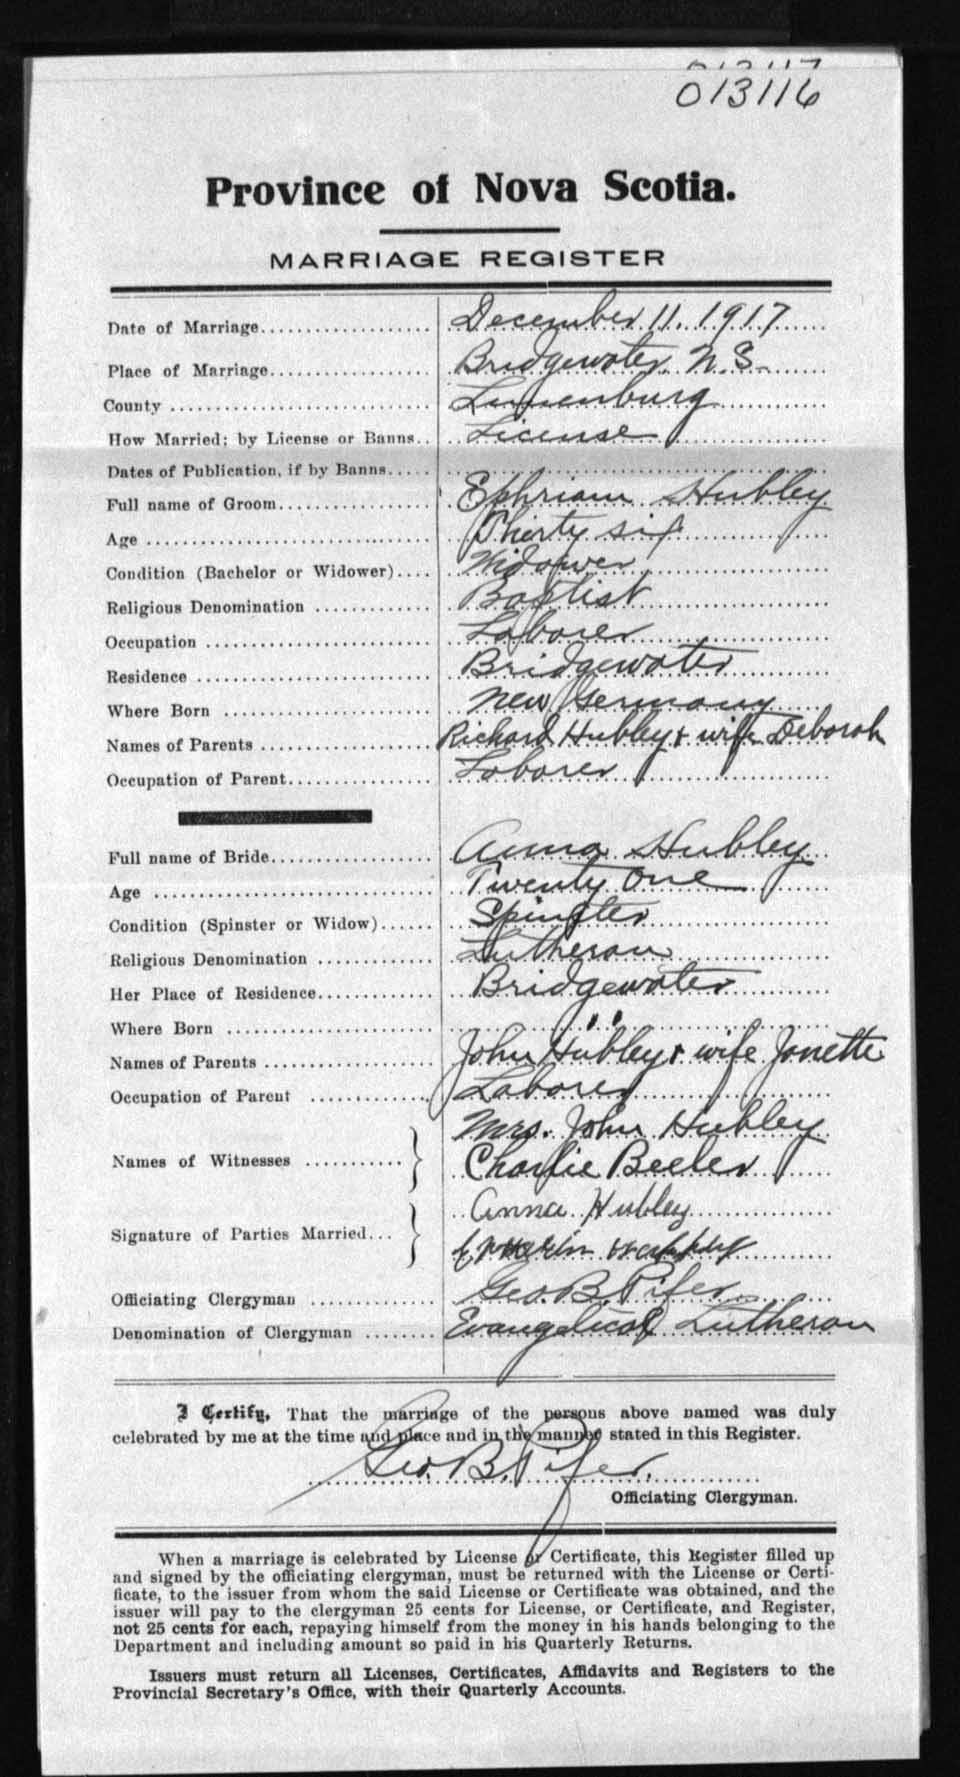 013116
Province of Nova Scotia.
MARRIAGE REGISTER
Date of Marriage December 11. 1917
Place of Marriage Bridgewater N.S.
County Lunenburg
How Married; by License or Banns License
Dates of Publication, if by Banns
Full name of Groom Ephriam Hubley
Age Thirty six
Condition (Bachelor or Widower) Widower
Religious Denomination Baptist
Occupation Laborer
Residence Bridgewater
Where Born New Germany
Names of Parents Richard Hubley & wife Deborah
Occupation of Parent Laborer
Full name of Bride Anna Hubley
Age Twenty one
Condition (Spinster or Widow) Spinster
Religious Denomination Lutheran
Her Place of Residence Bridgewater
Where Born " "
Names of Parents John Hubley & wife Janette
Occupation of Parent Laborer
Mrs. John Hubley
Names of Witnesses } Charlie Beeler
Anna Hubley
Signature of Parties Married }
Officiating Clergyman Geo. B. Pifer
Denomination of Clergyman Evangelical Lutheran
I Certify, That the marriage of the persons above named was duly
celebrated by me at the time and place and in the manner stated in this Register.
Geo. B. Pifer.
Officiating Clergyman.
When a marriage is celebrated by License or Certificate, this Register filled up
and signed by the officiating clergyman, must be returned with the License or Certi-
ficate, to the issuer from whom the said License or Certificate was obtained, and the
issuer will pay to the clergyman 25 cents for License, or Certificate, and Register,
not 25 cents for each, repaying himself from the money in his hands belonging to the
Department and including amount so paid in his Quarterly Returns.
Issuers must return all Licenses, Certificates, Affidavits and Registers to the
Provincial Secretary's Office, with their Quarterly Accounts.